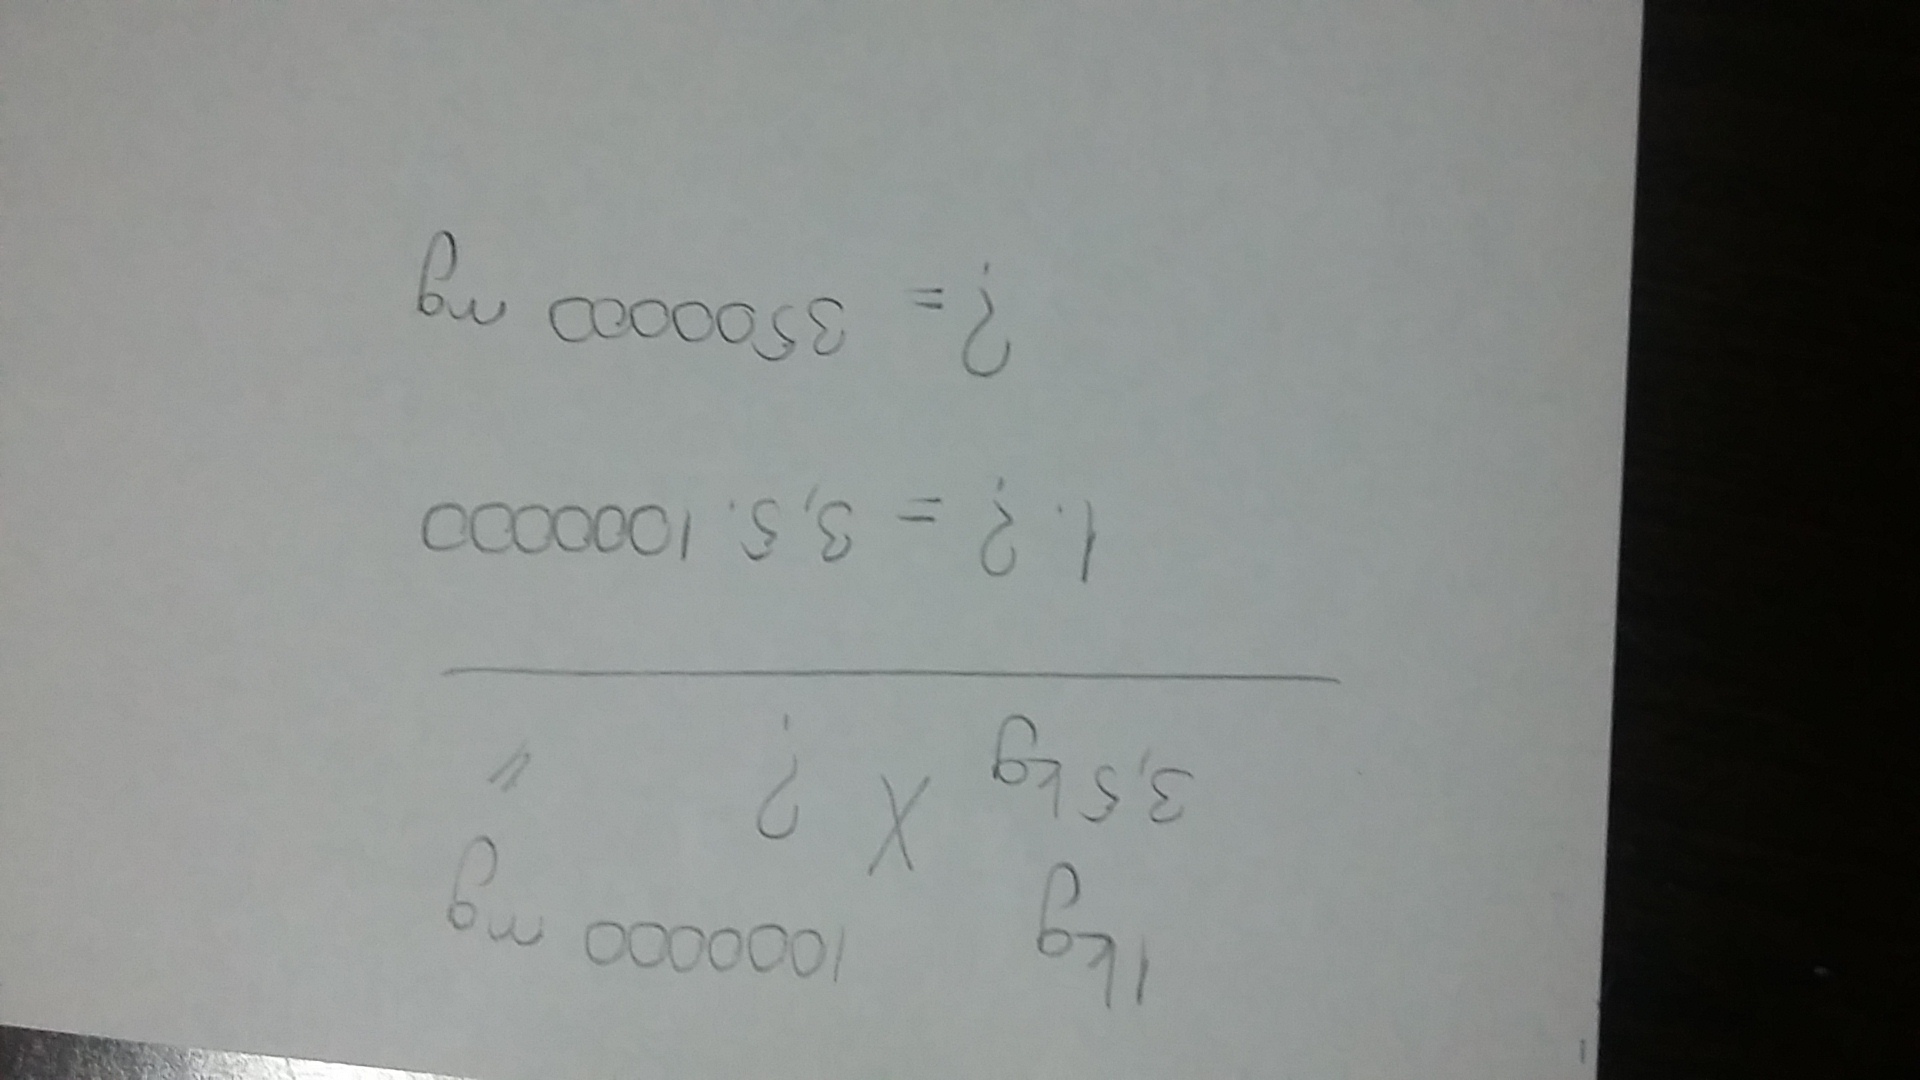 1kg 1000000 mg
3,5 kg X ? "
1. ? = 3,5. 1000000
? = 3500000 mg